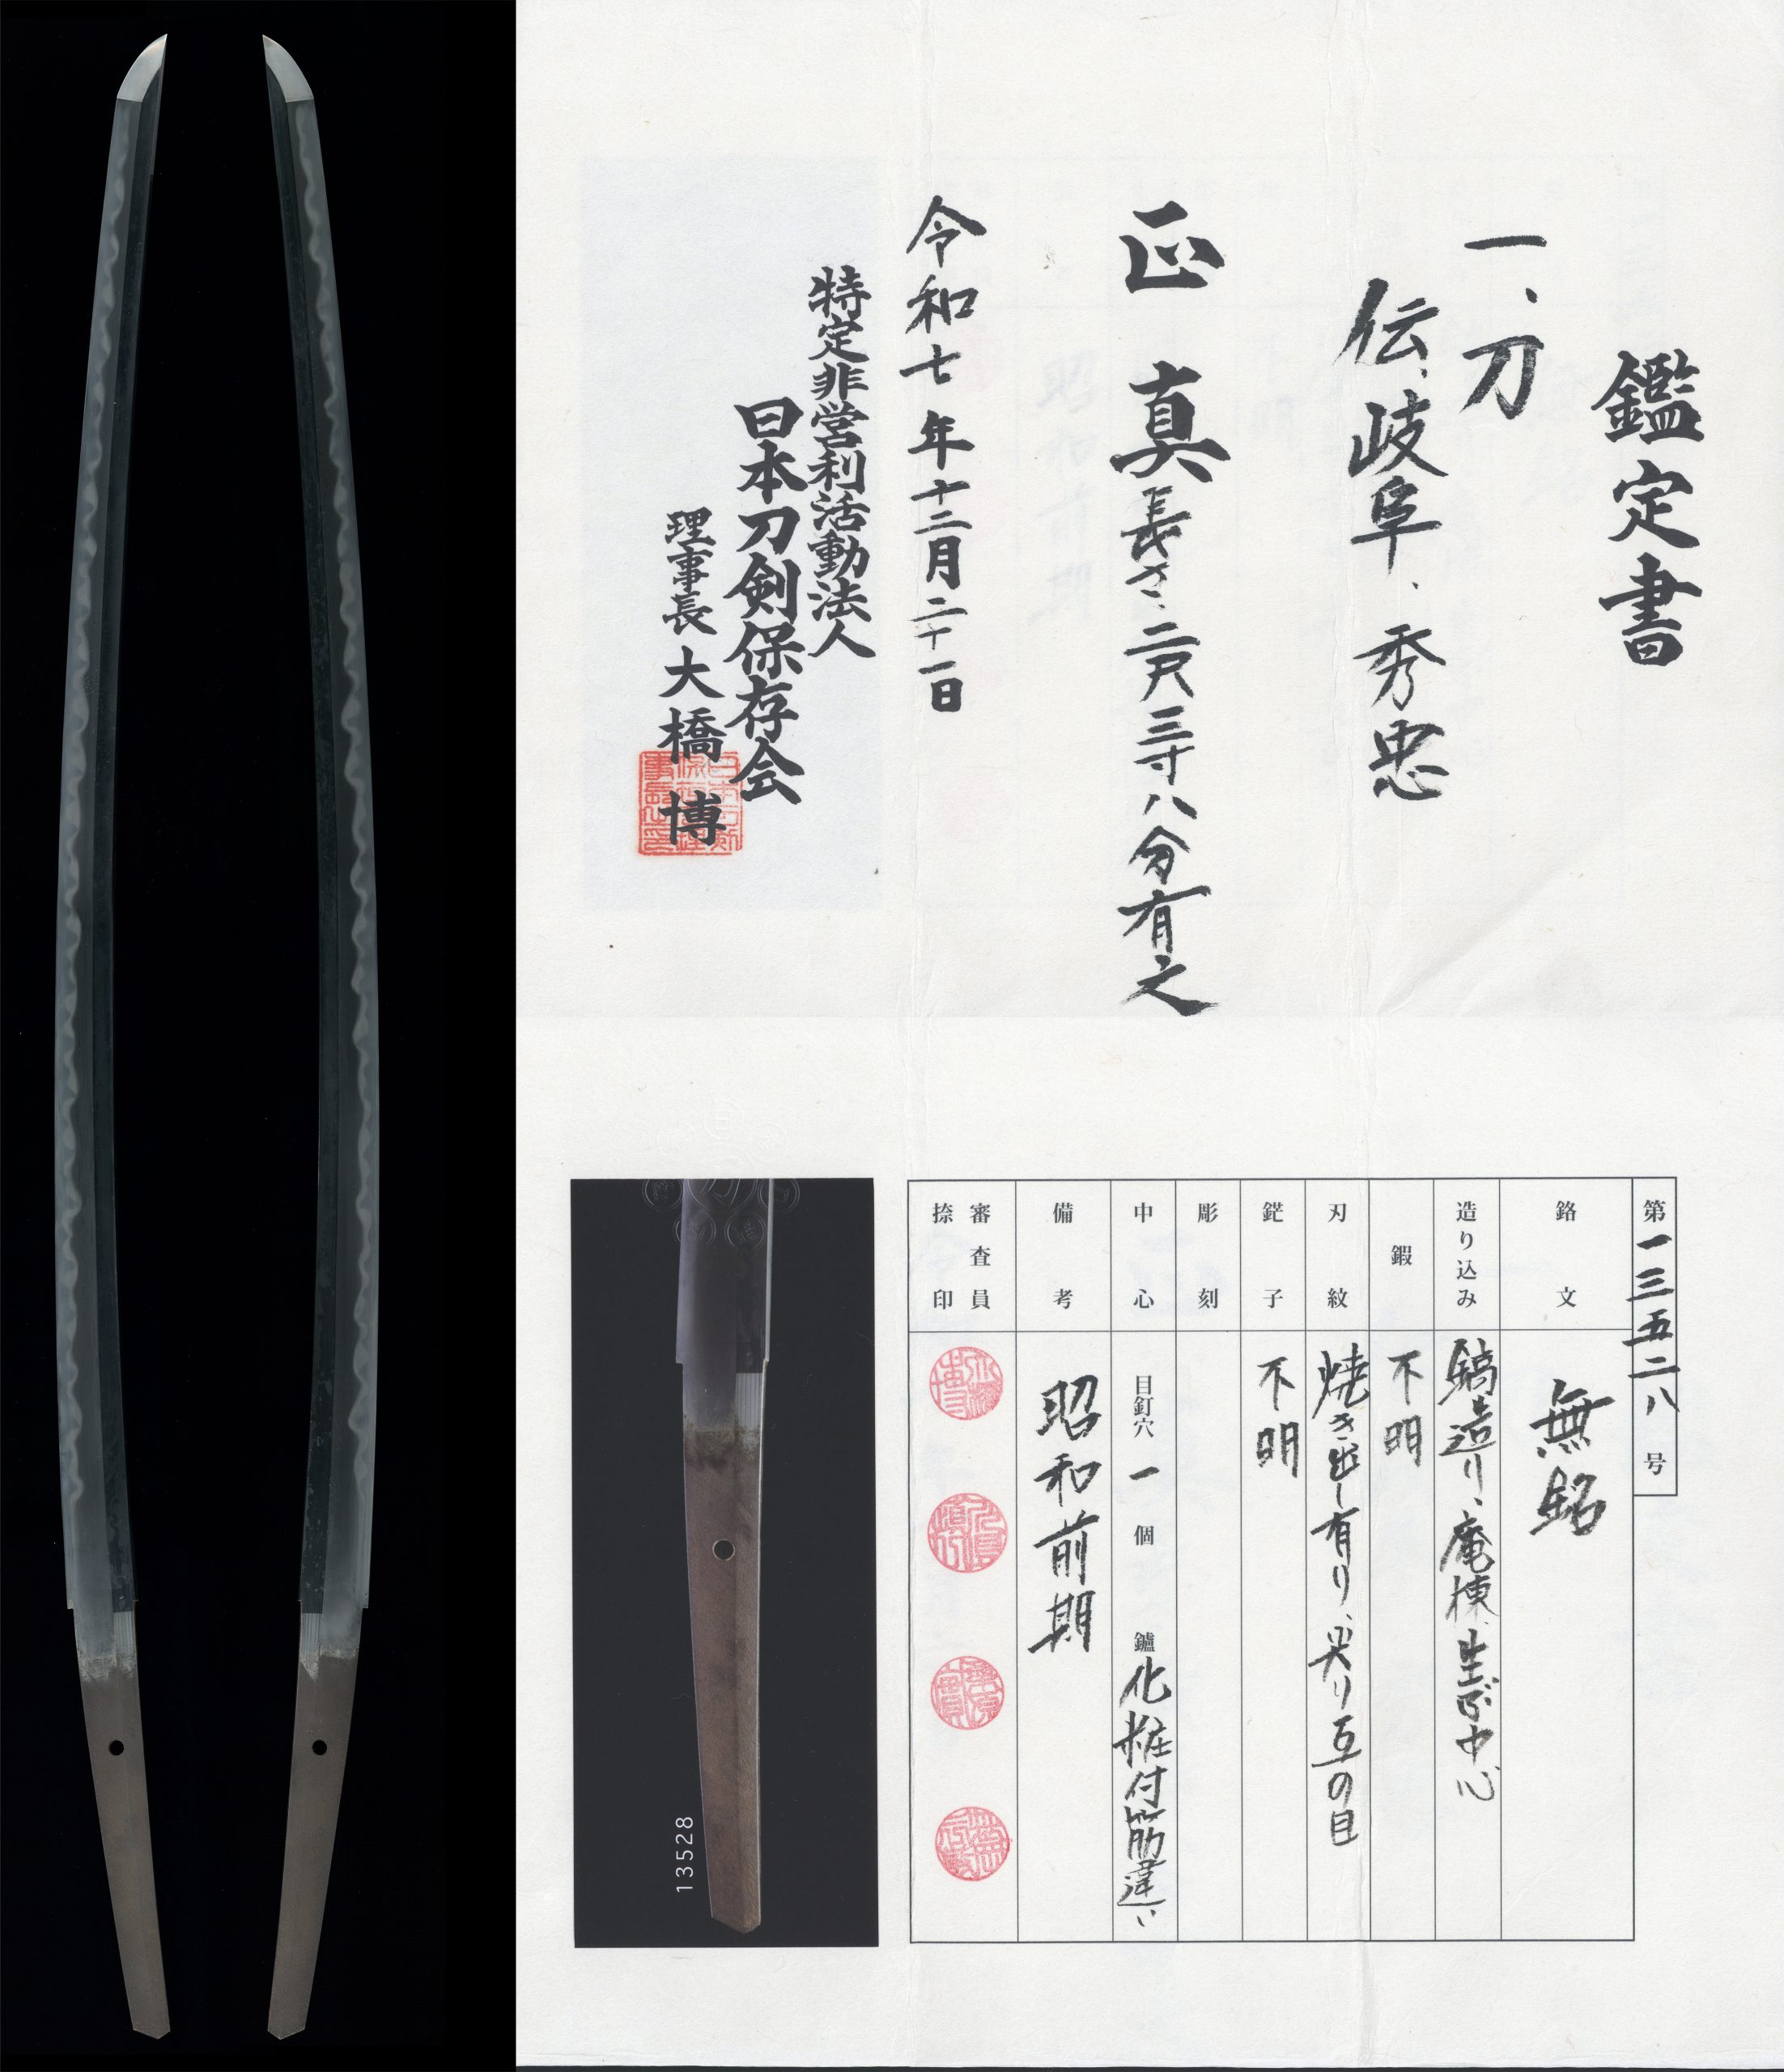 鑑定書
一、刀
伝、岐阜、秀忠
正真
長さ、二尺三寸八分有之
令和七年十二月二十一日
特定非営利活動法人
日本刀剣保存会
理事長 大橋 博
第一三五二八号
銘文 無銘
造り込み 鎬造り、庵棟、生ぶ中心
鍛 不明
刃紋 焼き出し有り、尖り互の目
鋩子 不明
彫刻
中心 目釘穴 一 個 鑢 化粧付筋違い
備考 昭和前期
審査員
捺印
13528